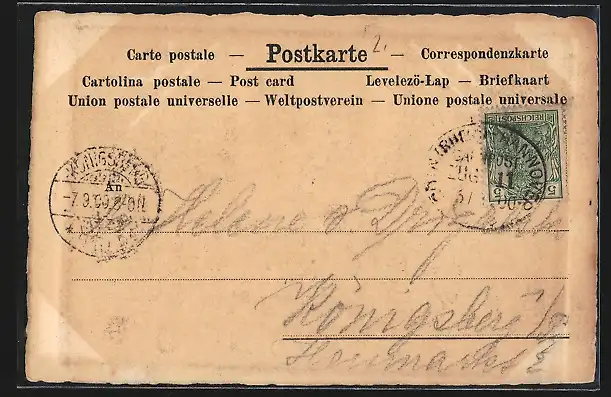 2.
Carte postale — Postkarte — Correspondenzkarte
Cartolina postale — Post card Levelezö-Lap — Briefkaart
Union postale universelle — Weltpostverein — Unione postale universale
REICHSPOST
5 5
HANNOVER
BAHNPOST
ZUG 11
An
-7.9.09
Helene
Königsberg